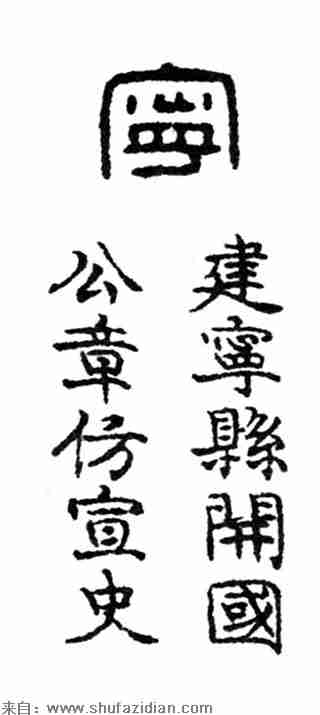 寧
建寧縣開國
公章仿宣史
来自：www.shufazidian.com